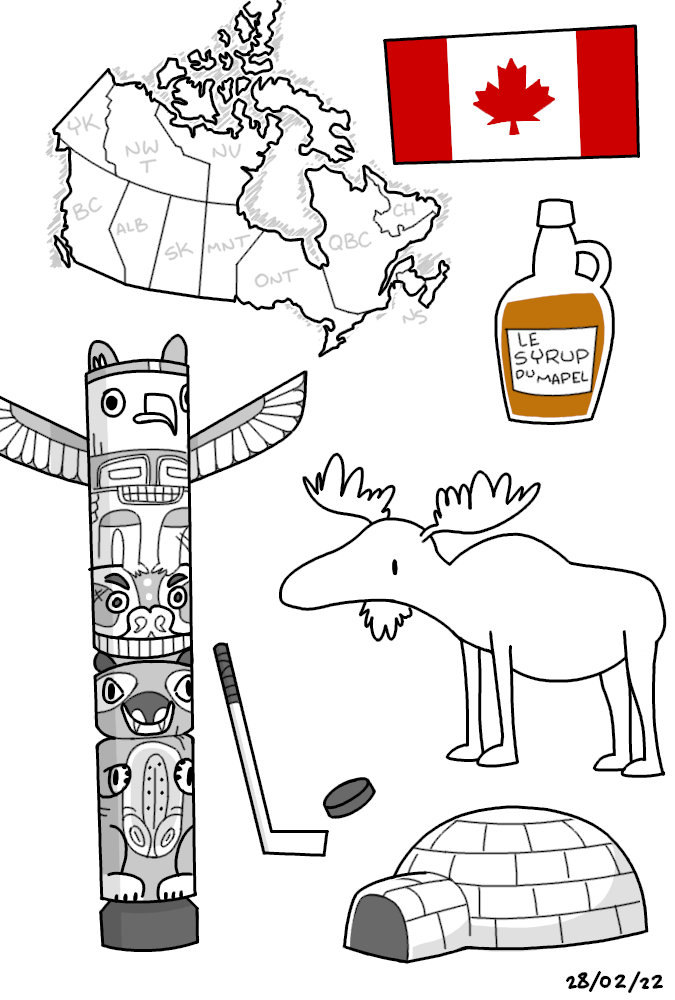 YK
NW
T
NV
BC
ALB
SK
MNT
ONT
QBC
CH
NS
LE
SYRUP
DU MAPEL
28/02/22